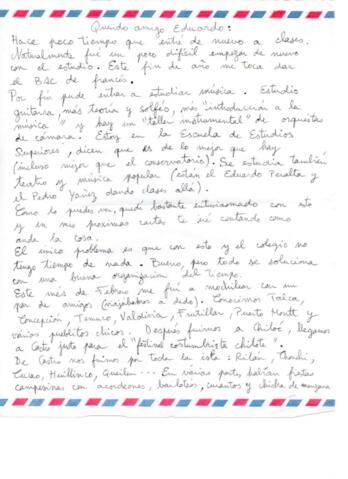 Querido amigo Eduardo:
Hace poco tiempo que entré de nuevo a clases.
Naturalmente fué un poco difícil empezar de nuevo
con el estudio. Este fin de año me toca dar
el BAC de francés.
Por fin pude entrar a estudiar música. Estudio
guitarra, más teoría y solfeo, más "introducción a la
música" y hay un "taller instrumental" de orquestas
de cámara. Estoy en la Escuela de Estudios
Superiores, dicen que es de lo mejor que hay
(incluso mejor que el conservatorio). Se estudia también
teatro y música popular (están el Eduardo Peralta y
el Pedro Yañez dando clases allá).
Como lo puedes ver, quedé bastante entusiasmado con esto
y en mis proximas cartas te iré contando como
anda la cosa.
El único problema es que con esto y el colegio no
tengo tiempo de nada. Bueno, pero todo se soluciona
con una buena organización del tiempo.
Este més de Febrero me fui a mochilear con un
par de amigos (viajabamos a dedo). Conocimos Talca,
Concepción, Temuco, Valdivia, Frutillar, Puerto Montt y
vários pueblitos chicos. Después fuimos a Chiloé, llegamos
a Castro justo para el "festival costumbrista chilote".
De Castro nos fuimos por toda la isla: Rilán, Chonchi,
Cucao, Huillinco, Queilen... En várias partes habían fiestas
campesinas con acordeones, bailoteos, curantos y chicha de manzana